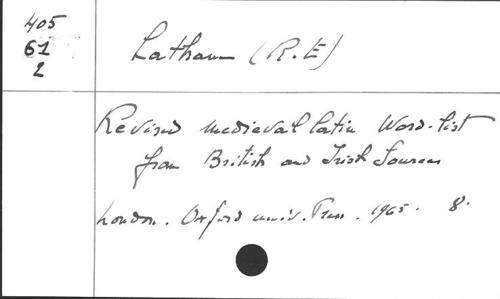 405
61
2
Latham (R.E)
Revised medieval latin Word-list
from British and Irish Sources
London. Oxford univ. Press. 1965. 8.